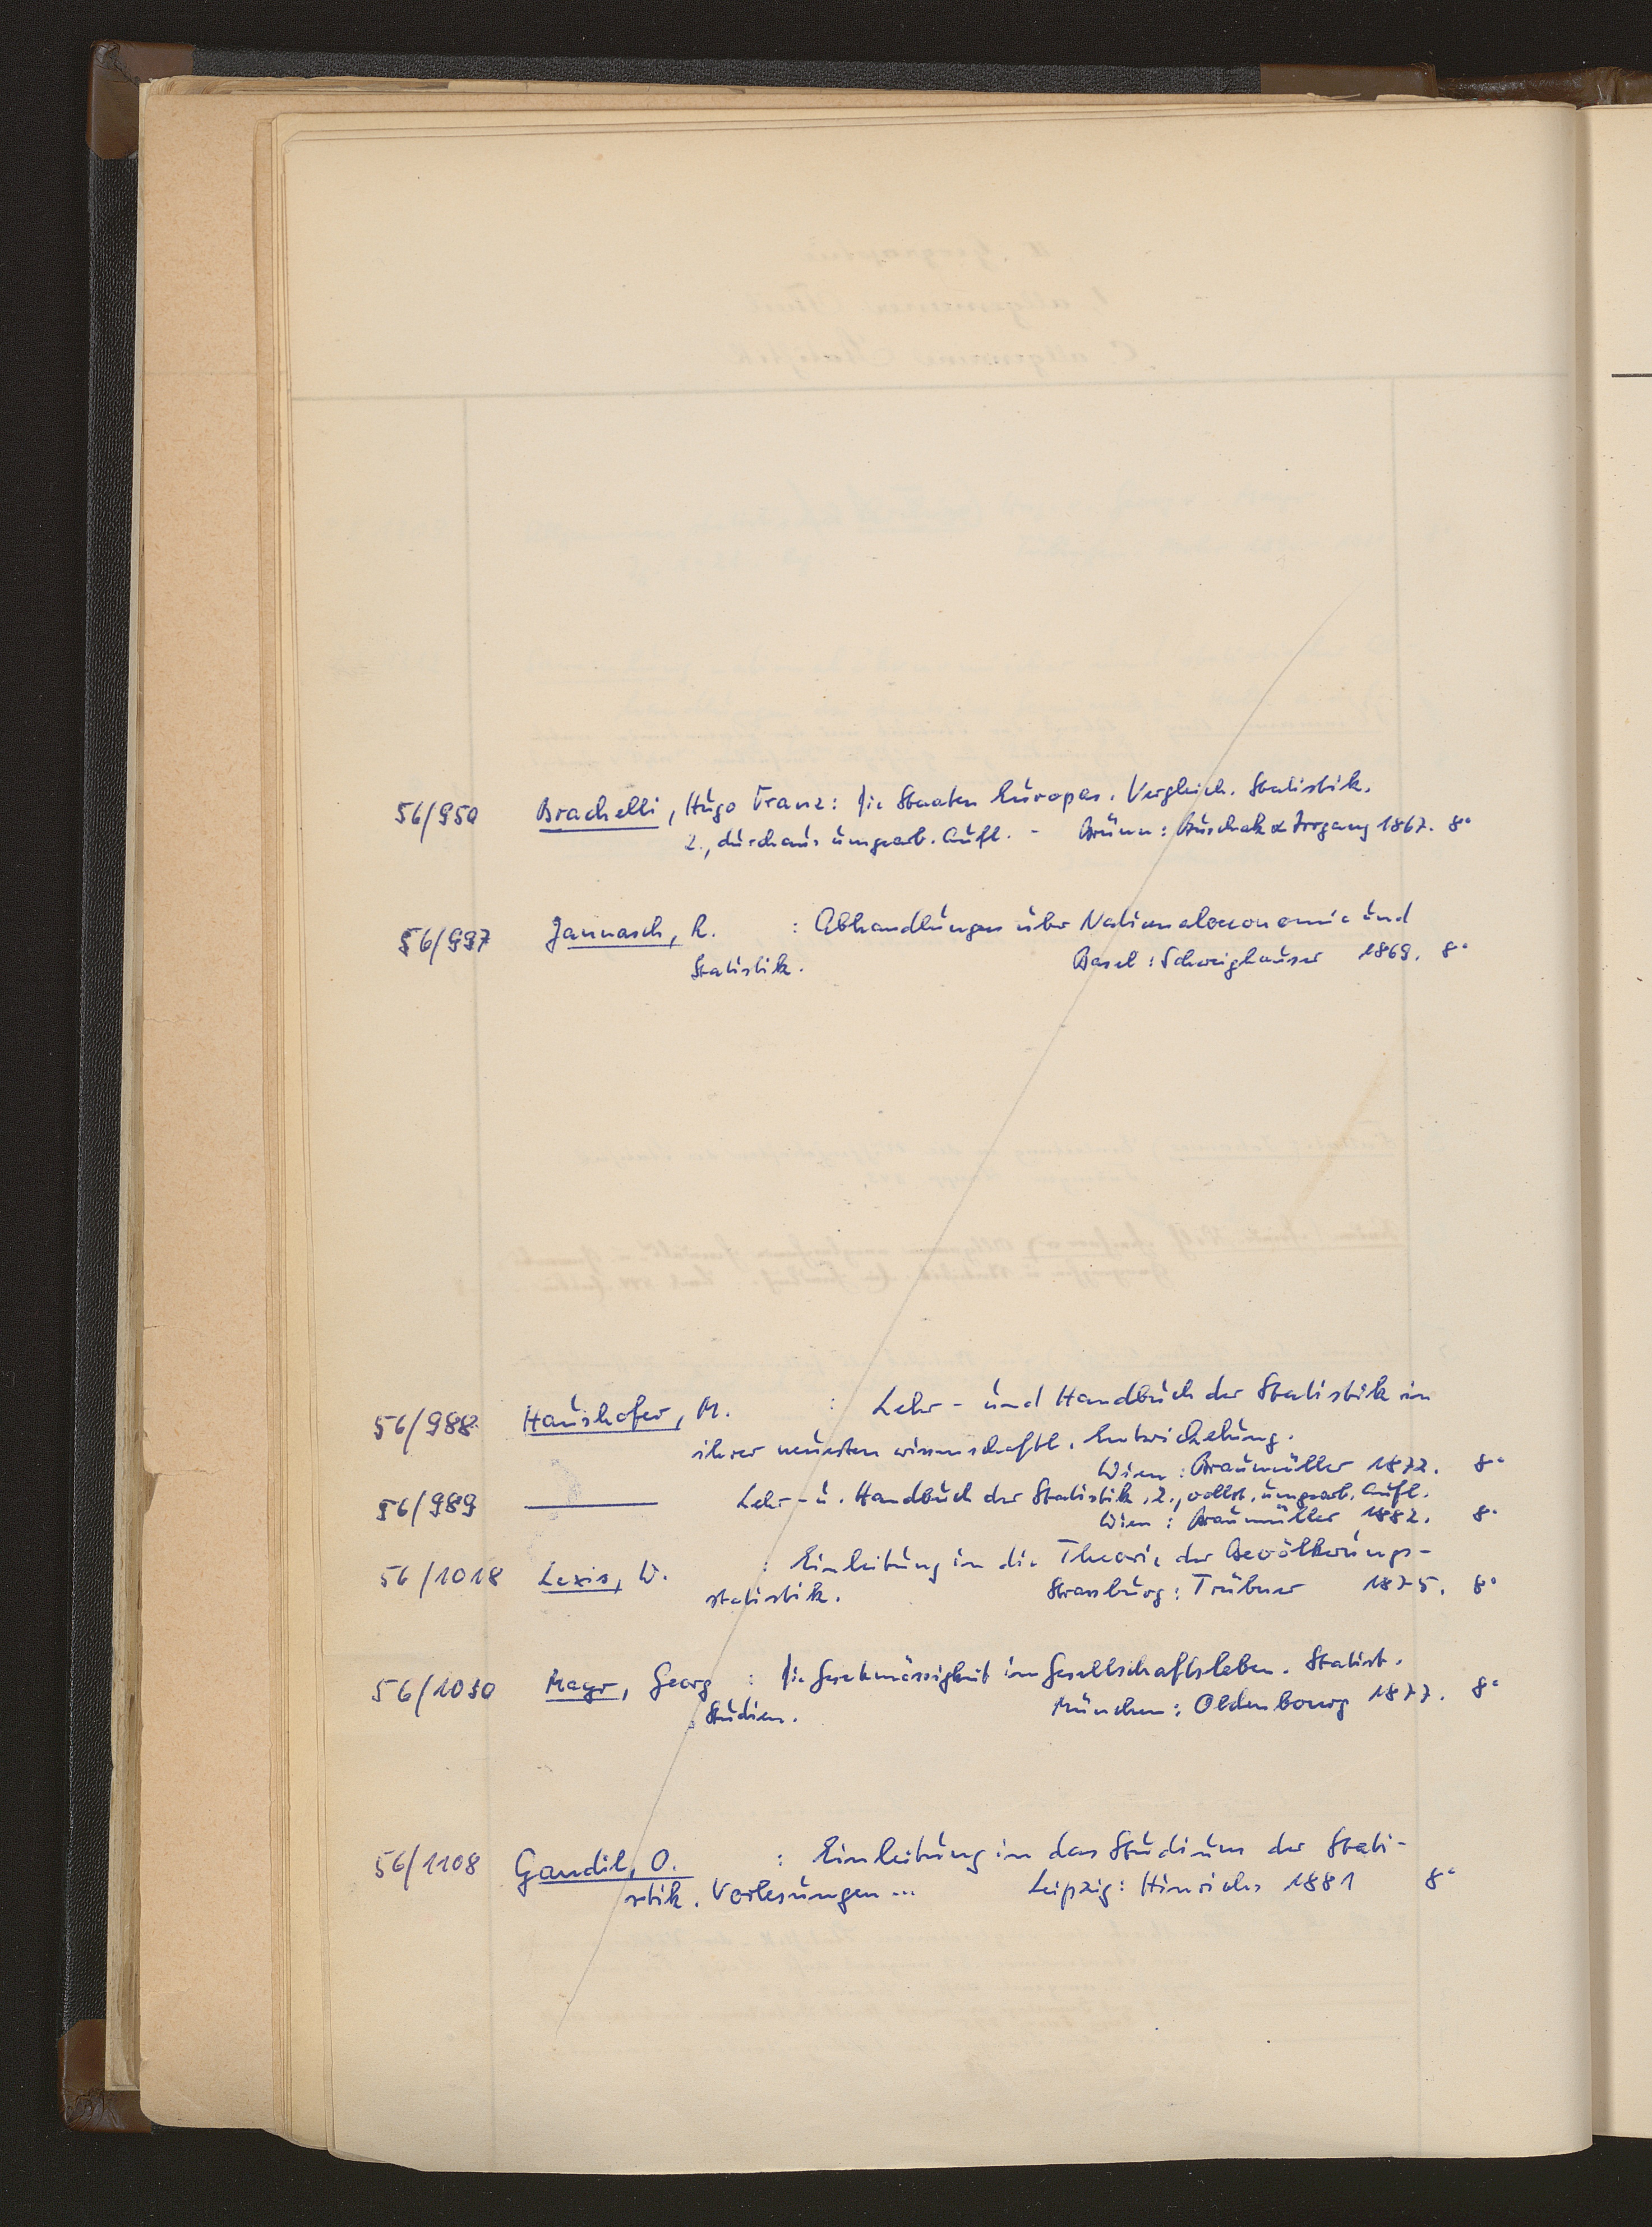 56/950 Brachelli, Hugo Franz: Die Staaten Europas. Vergleich. Statistik.
2., durchaus umgearb. Aufl. - Brünn: Buschak & Irrgang 1867. 8°
56/997 Jannasch, R. : Abhandlungen über Nationaloeconomie und
Statistik. Basel: Schweighauser 1869. 8°
56/988 Haushofer, M. : Lehr- und Handbuch der Statistik in
ihrer neuesten wissenschaftl. Entwickelung.
Wien: Braumüller 1872. 8°
56/989 ——— Lehr- u. Handbuch der Statistik. 2., vollst. umgearb. Aufl.
Wien: Braumüller 1882. 8°
56/1018 Lexis, W. : Einleitung in die Theorie der Bevölkerungs-
statistik. Strassburg: Trübner 1875. 8°
56/1030 Mayr, Georg : Die Gesetzmässigkeit im Gesellschaftsleben. Statist.
Studien. München: Oldenbourg 1877. 8°
56/1108 Gandil, O. : Einleitung in das Studium der Stati-
stik. Vorlesungen ... Leipzig: Hinrichs 1881 8°